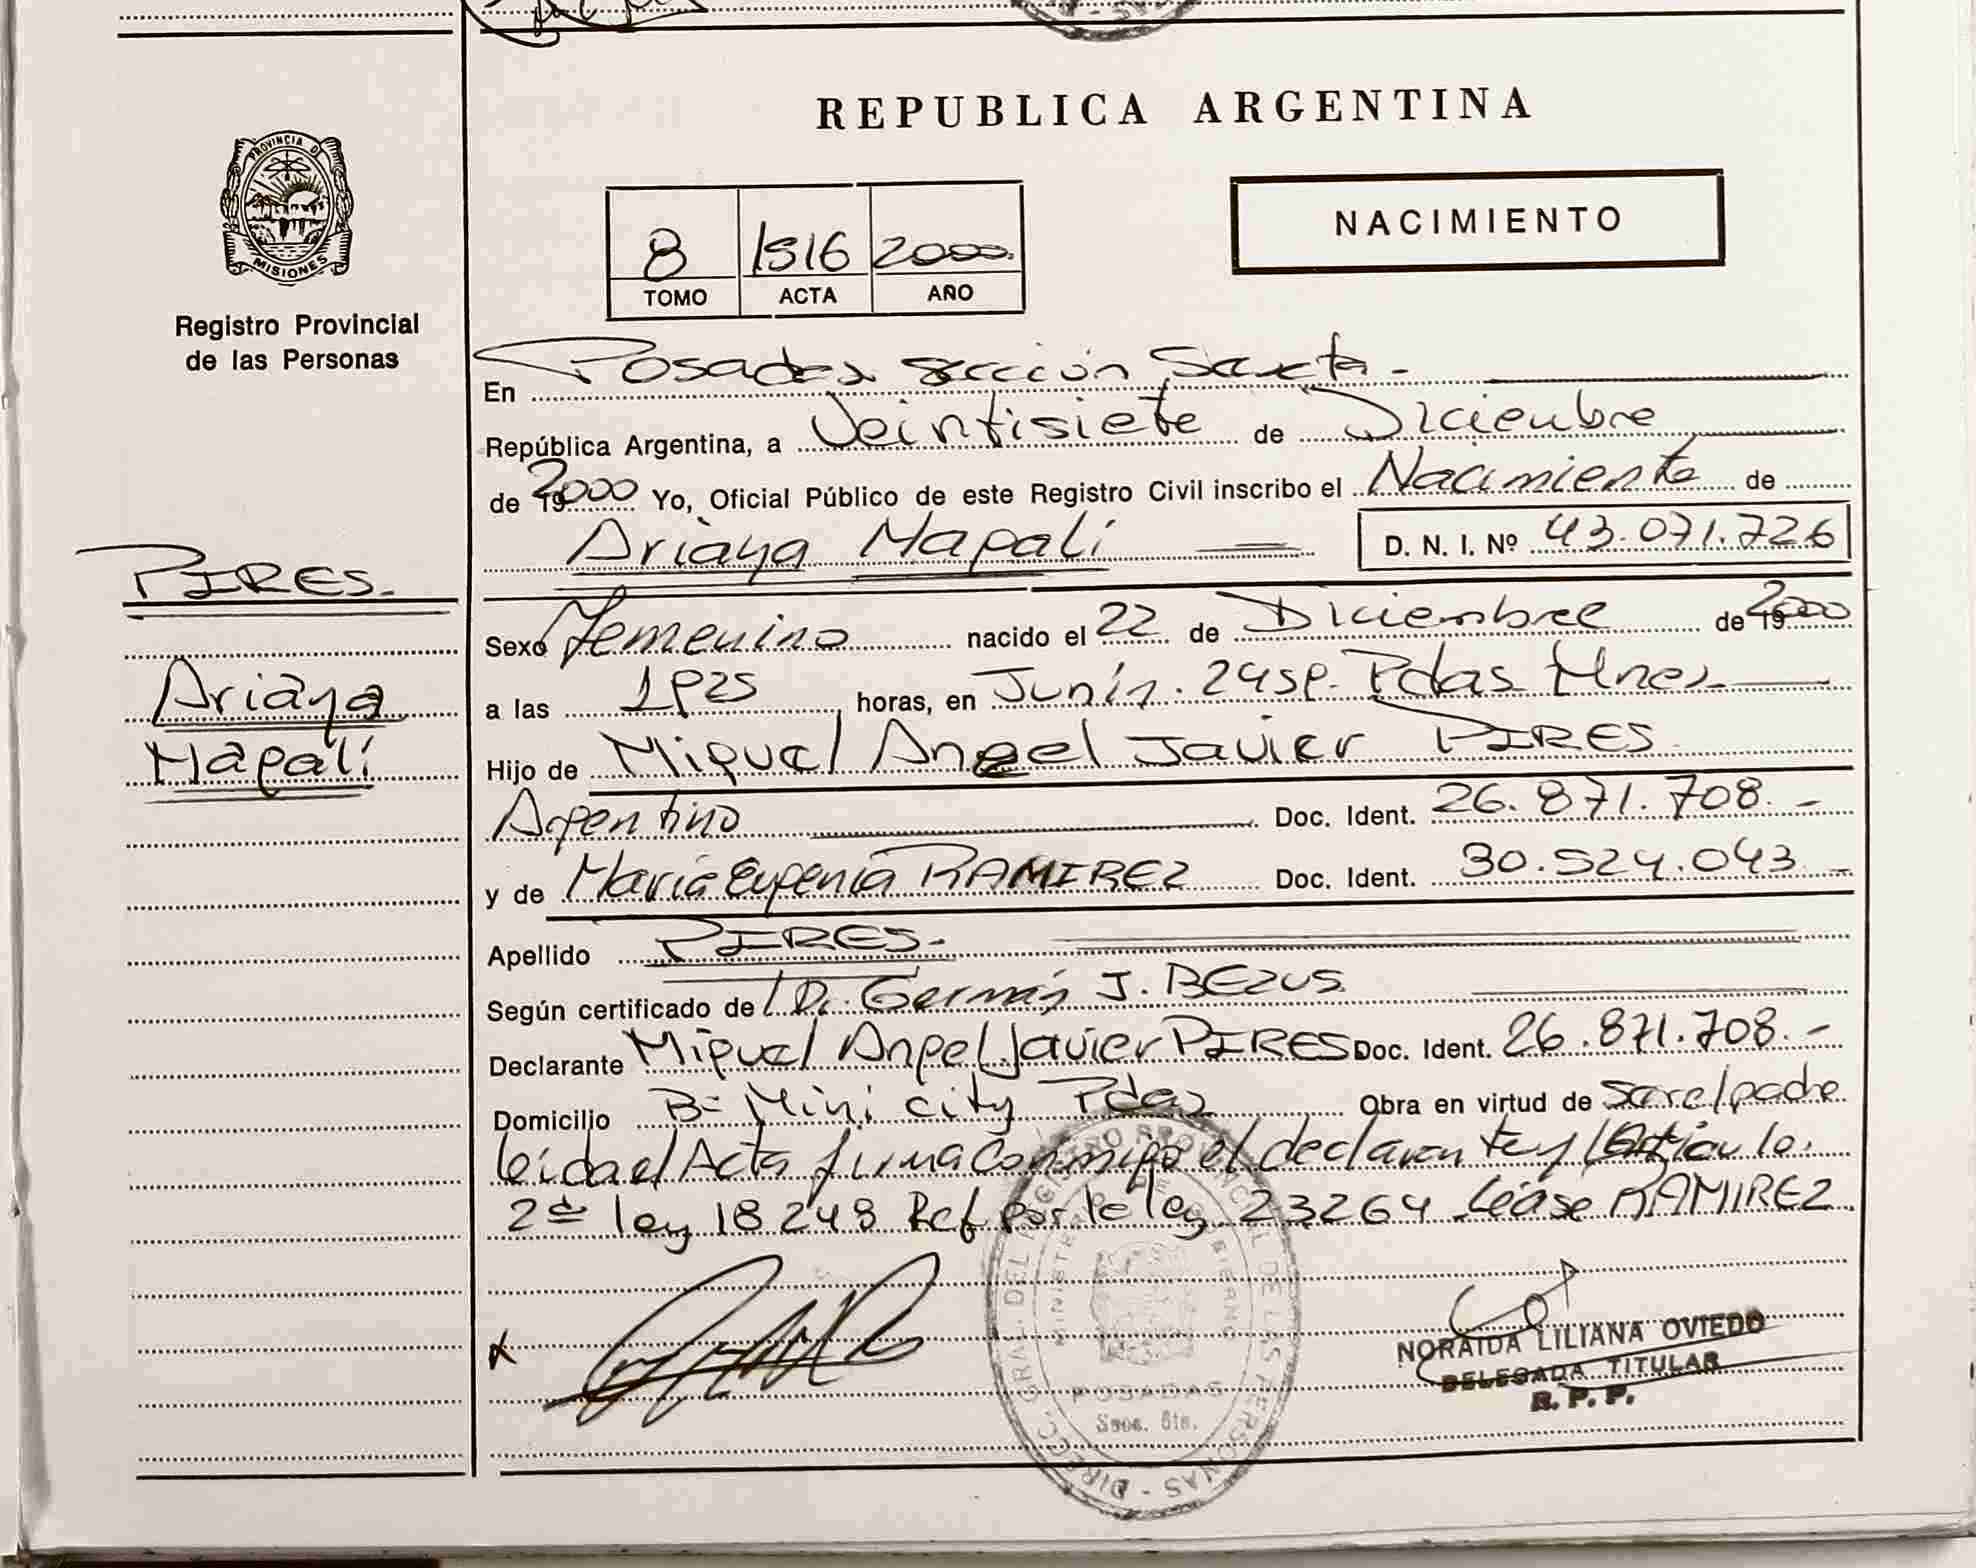 REPUBLICA ARGENTINA
PROVINCIA DE
MISIONES
Registro Provincial
de las Personas
8 1516 2000.
TOMO ACTA AÑO
NACIMIENTO
En Posadas sección Sexta.-
República Argentina, a Veintisiete de Diciembre
de 2000 Yo, Oficial Público de este Registro Civil inscribo el Nacimiento de
Ariaya Mapalí D. N. I. Nº 43.071.726
PIRES.
Ariaya
Mapalí
Sexo Femenino nacido el 22 de Diciembre de 2000
a las horas, en Junín. 2458. Pdas Mnes
Hijo de Miguel Angel Javier PIRES
Argentino Doc. Ident. 26.871.708.-
y de María Eugenia RAMIREZ Doc. Ident. 30.524.043.-
Apellido PIRES.-
Según certificado de Dr. Germán J. BEZUS
Declarante Miguel Angel Javier PIRES Doc. Ident. 26.871.708.-
Domicilio Bº Mini city Pdas Obra en virtud de ser el padre
leida el Acta firma conmigo el declarante
2do ley 18248 Ref por la ley 23264 Léase RAMIREZ
DIRECC. GRAL. DEL REGISTRO PROVINCIAL DE LAS PERSONAS -
MINISTERIO DE GOBIERNO
POSADAS
Secc. 6ta.
NORAIDA LILIANA OVIEDO
DELEGADA TITULAR
R. P. P.